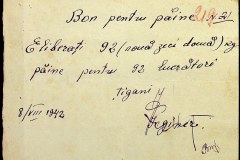 Bon pentru pâine
Eliberați 92 (nouă zeci două) kg
pâine pentru 92 lucrători
țigani
8/VIII 1942